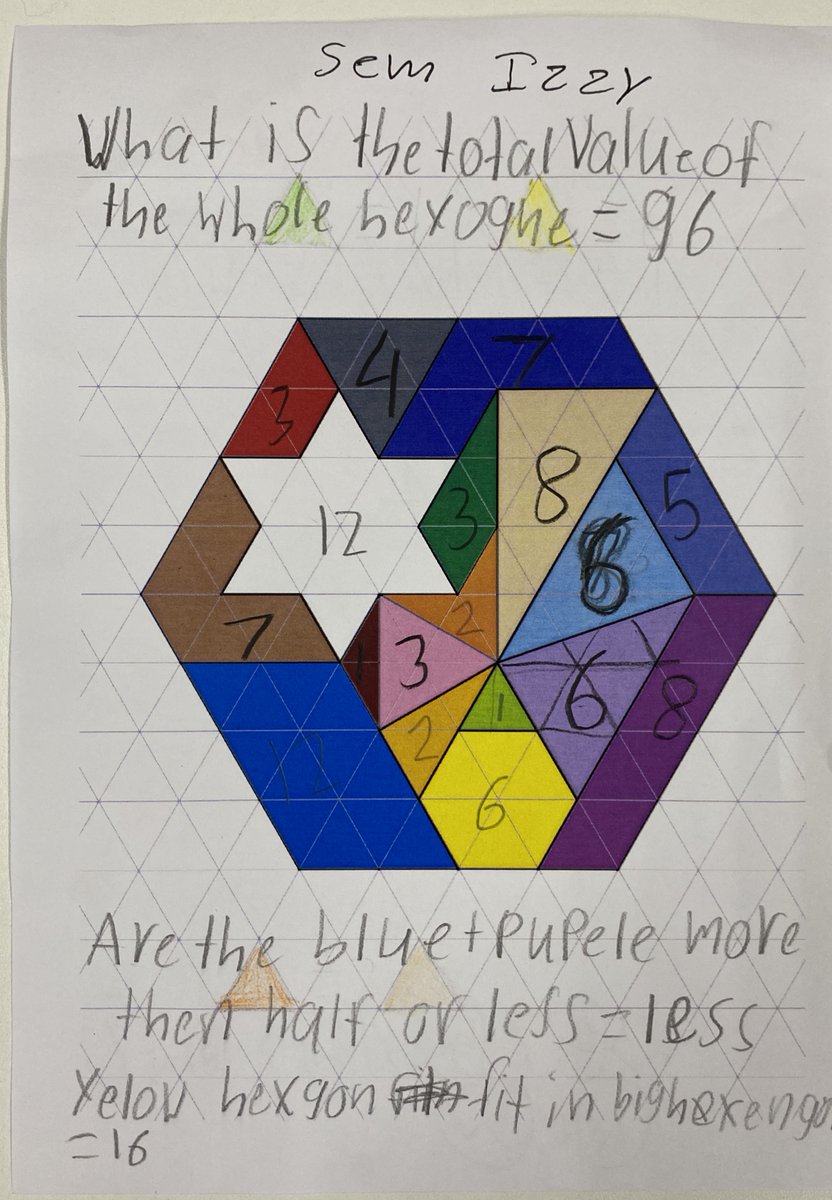 Sem Izzy
What is the total value of
the whole hexoghe = 96
4 7
3
8
5
12 3
6
2
7 1 3
6 8
1
2
12
6
Are the blue + pupele more
then half or less = less
Yelou hexgon fit in big hexengon
= 16